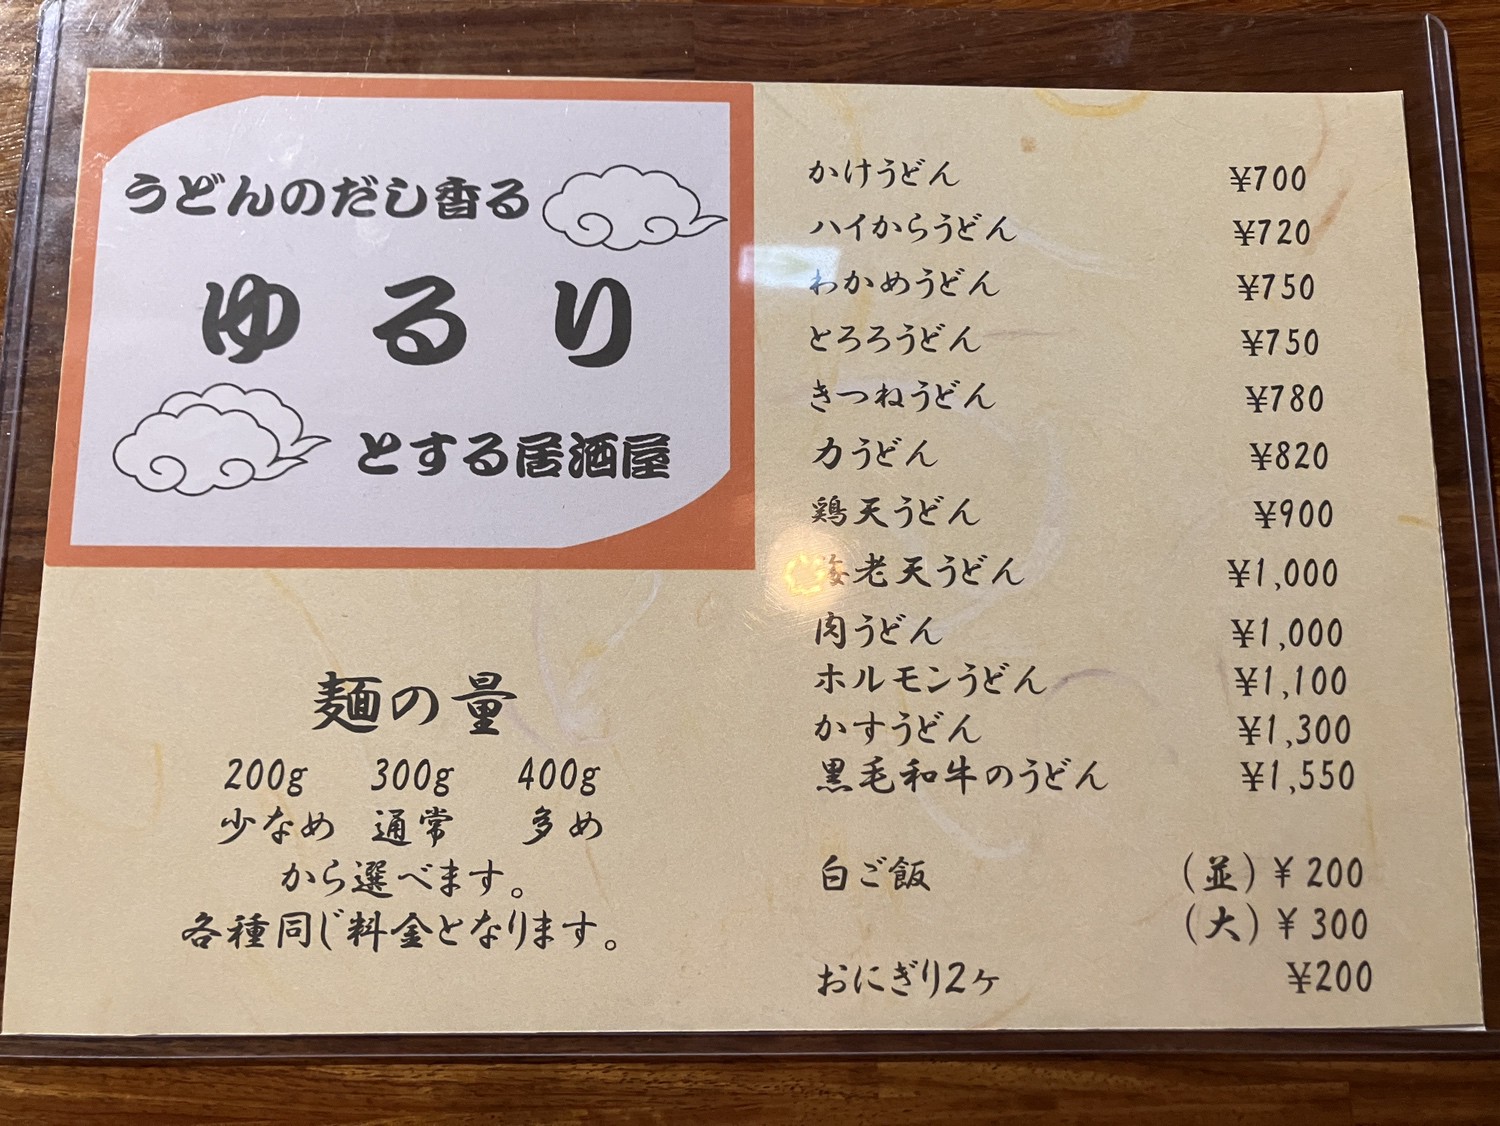 うどんのだし香る
ゆるり
とする居酒屋
麺の量
200g 300g 400g
少なめ 通常 多め
から選べます。
各種同じ料金となります。
かけうどん ¥700
ハイカらうどん ¥720
わかめうどん ¥750
とろろうどん ¥750
きつねうどん ¥780
力うどん ¥820
鶏天うどん ¥900
海老天うどん ¥1,000
肉うどん ¥1,000
ホルモンうどん ¥1,100
かすうどん ¥1,300
黒毛和牛のうどん ¥1,550
白ご飯 (並) ¥ 200
(大) ¥ 300
おにぎり2ヶ ¥200